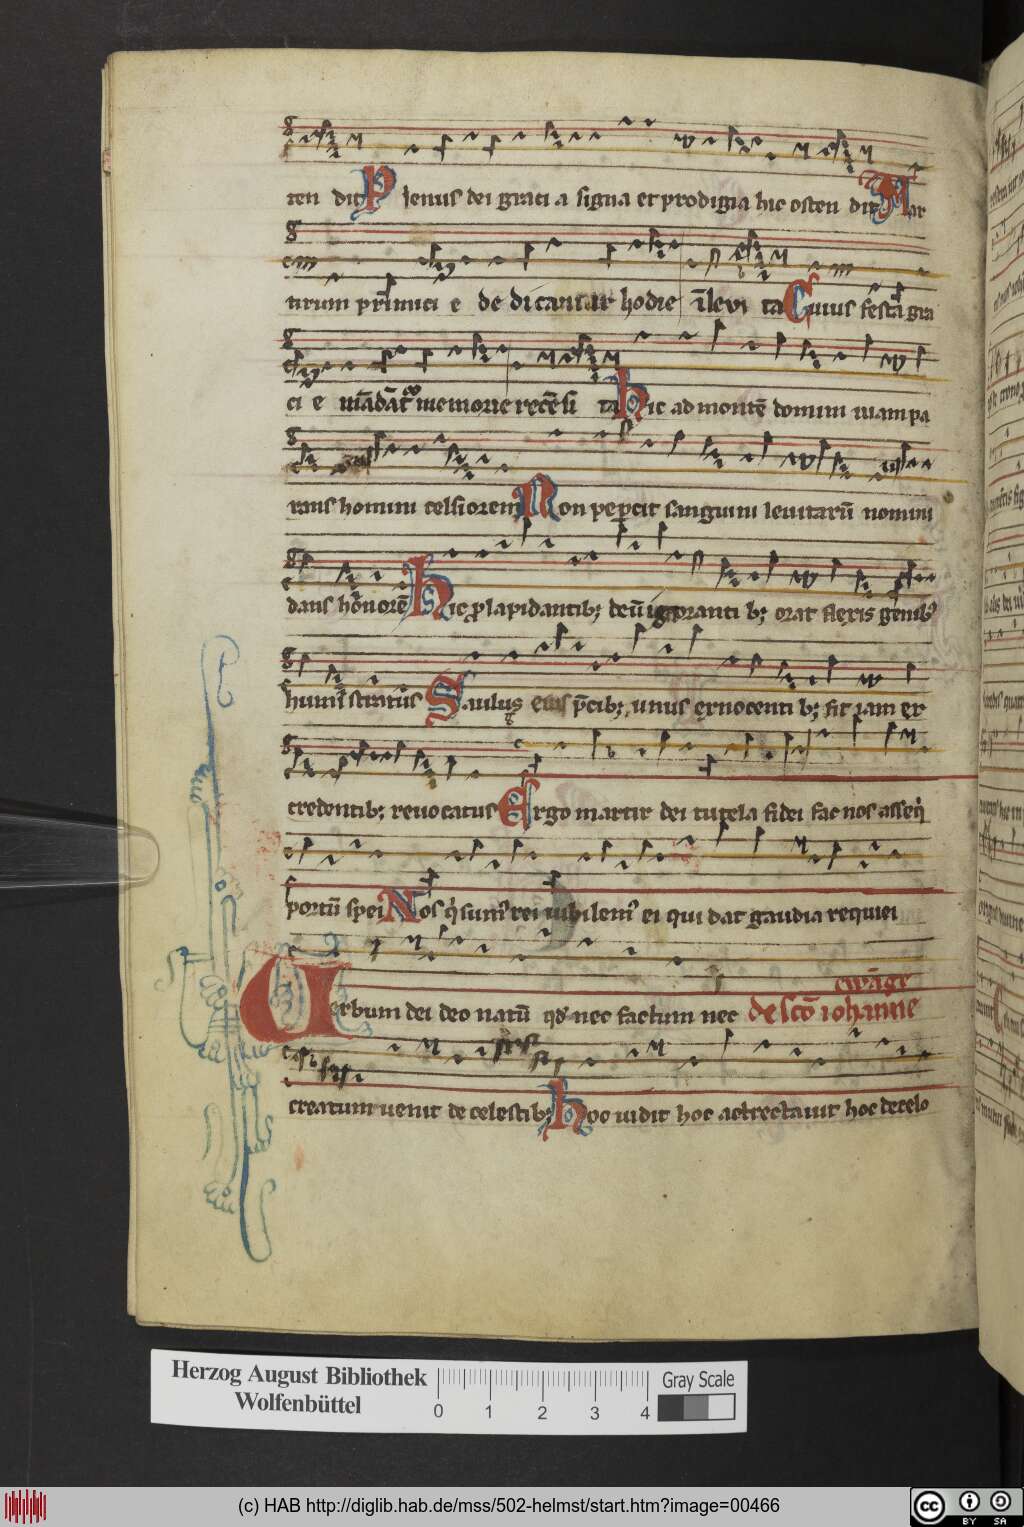 ten dit Plenus dei graci a signa et prodigia hic osten dit Mar
tirum primici e de di cantur hodie ī levi ta Cuius festā gra
ci e mādāt᷑ memorie recēsi ta Hic ad montē domini viam pa
rans homini celsiorem Non pepcit sanguini levitarū nomini
dans honorē Hic p lapidantib; deū ignoranti b; orat flexis genib᷒
humi stratus Saulus eius p̄cib; unus ex nocenti b; fit iam ex
credentib; revocatus Ergo martir dei tutela fidei fac nos asseq̇
portū spei Nos q̇sum᷒ rei iubilem᷒ ei qui dat gaudia requiei
Verbum dei deo natū qd nec factum nec de scō iohanne
ewāge
creatum venit de celestib; Hoc vidit hoc attrectavit hoc de celo
Herzog August Bibliothek
Wolfenbüttel
0 1 2 3 4
Gray Scale
(c) HAB http://diglib.hab.de/mss/502-helmst/start.htm?image=00466
cc BY SA